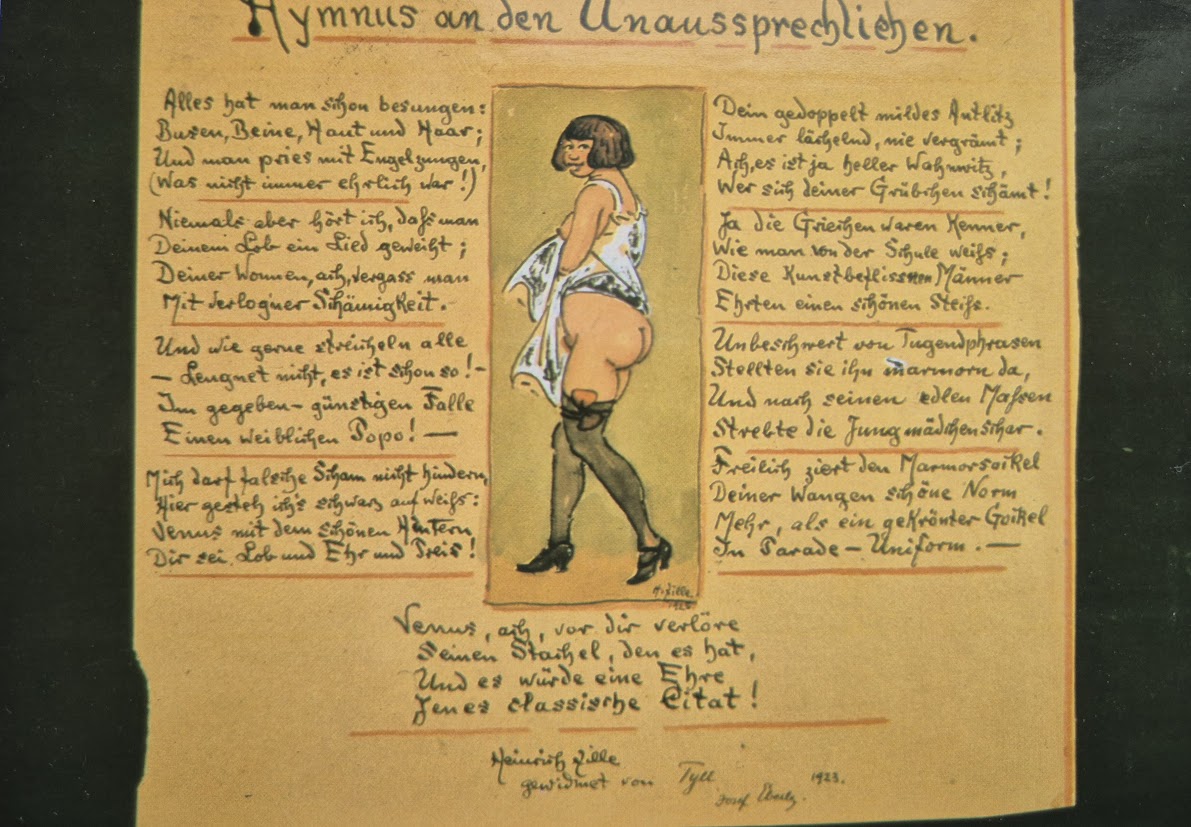 Hymnus an den Unaussprechlichen.
Alles hat man schon besungen:
Busen, Beine, Haut und Haar;
Und man pries mit Engelzungen,
(Was nicht immer ehrlich war!)
Niemals aber hört ich, daſs man
Deinem Lob ein Lied geweiht;
Deiner Wonnen, ach, vergass man
Mit verlogner Schämigkeit.-
Und wie gerne streicheln alle
– Leugnet nicht, es ist schon so! –
Im gegeben-günstigen Falle
Einen weiblichen Popo! —
Mich darf falsche Scham nicht hindern,
Hier gesteh ich's schwarz auf weiſs:
Venus mit dem schönen Hintern,
Dir sei Lob und Ehr und Preis!
Dein gedoppelt mildes Antlitz
Immer lächelnd, nie vergrämt;
Ach, es ist ja heller Wahnwitz,
Wer sich deiner Grübchen schämt!
Ja die Griechen waren Kenner,
Wie man von der Schule weiſs;
Diese Kunstbeflissnen Männer
Ehrten einen schönen Steiſs.
Unbeschwert von Tugendphrasen
Stellten sie ihn marmorn da,
Und nach seinen edlen Maſsen
Strebte die Jungmädchenschar.
Freilich ziert den Marmorsockel
Deiner Wangen schöne Norm
Mehr, als ein gekrönter Gockel
In Parade-Uniform. —
H. Zille
Venus, ach, vor dir verlöre
Seinen Stachel, den es hat,
Und es würde eine Ehre
Jenes classische Citat!
Heinrich Zille
gewidmet von Tyll 1923.
Josef